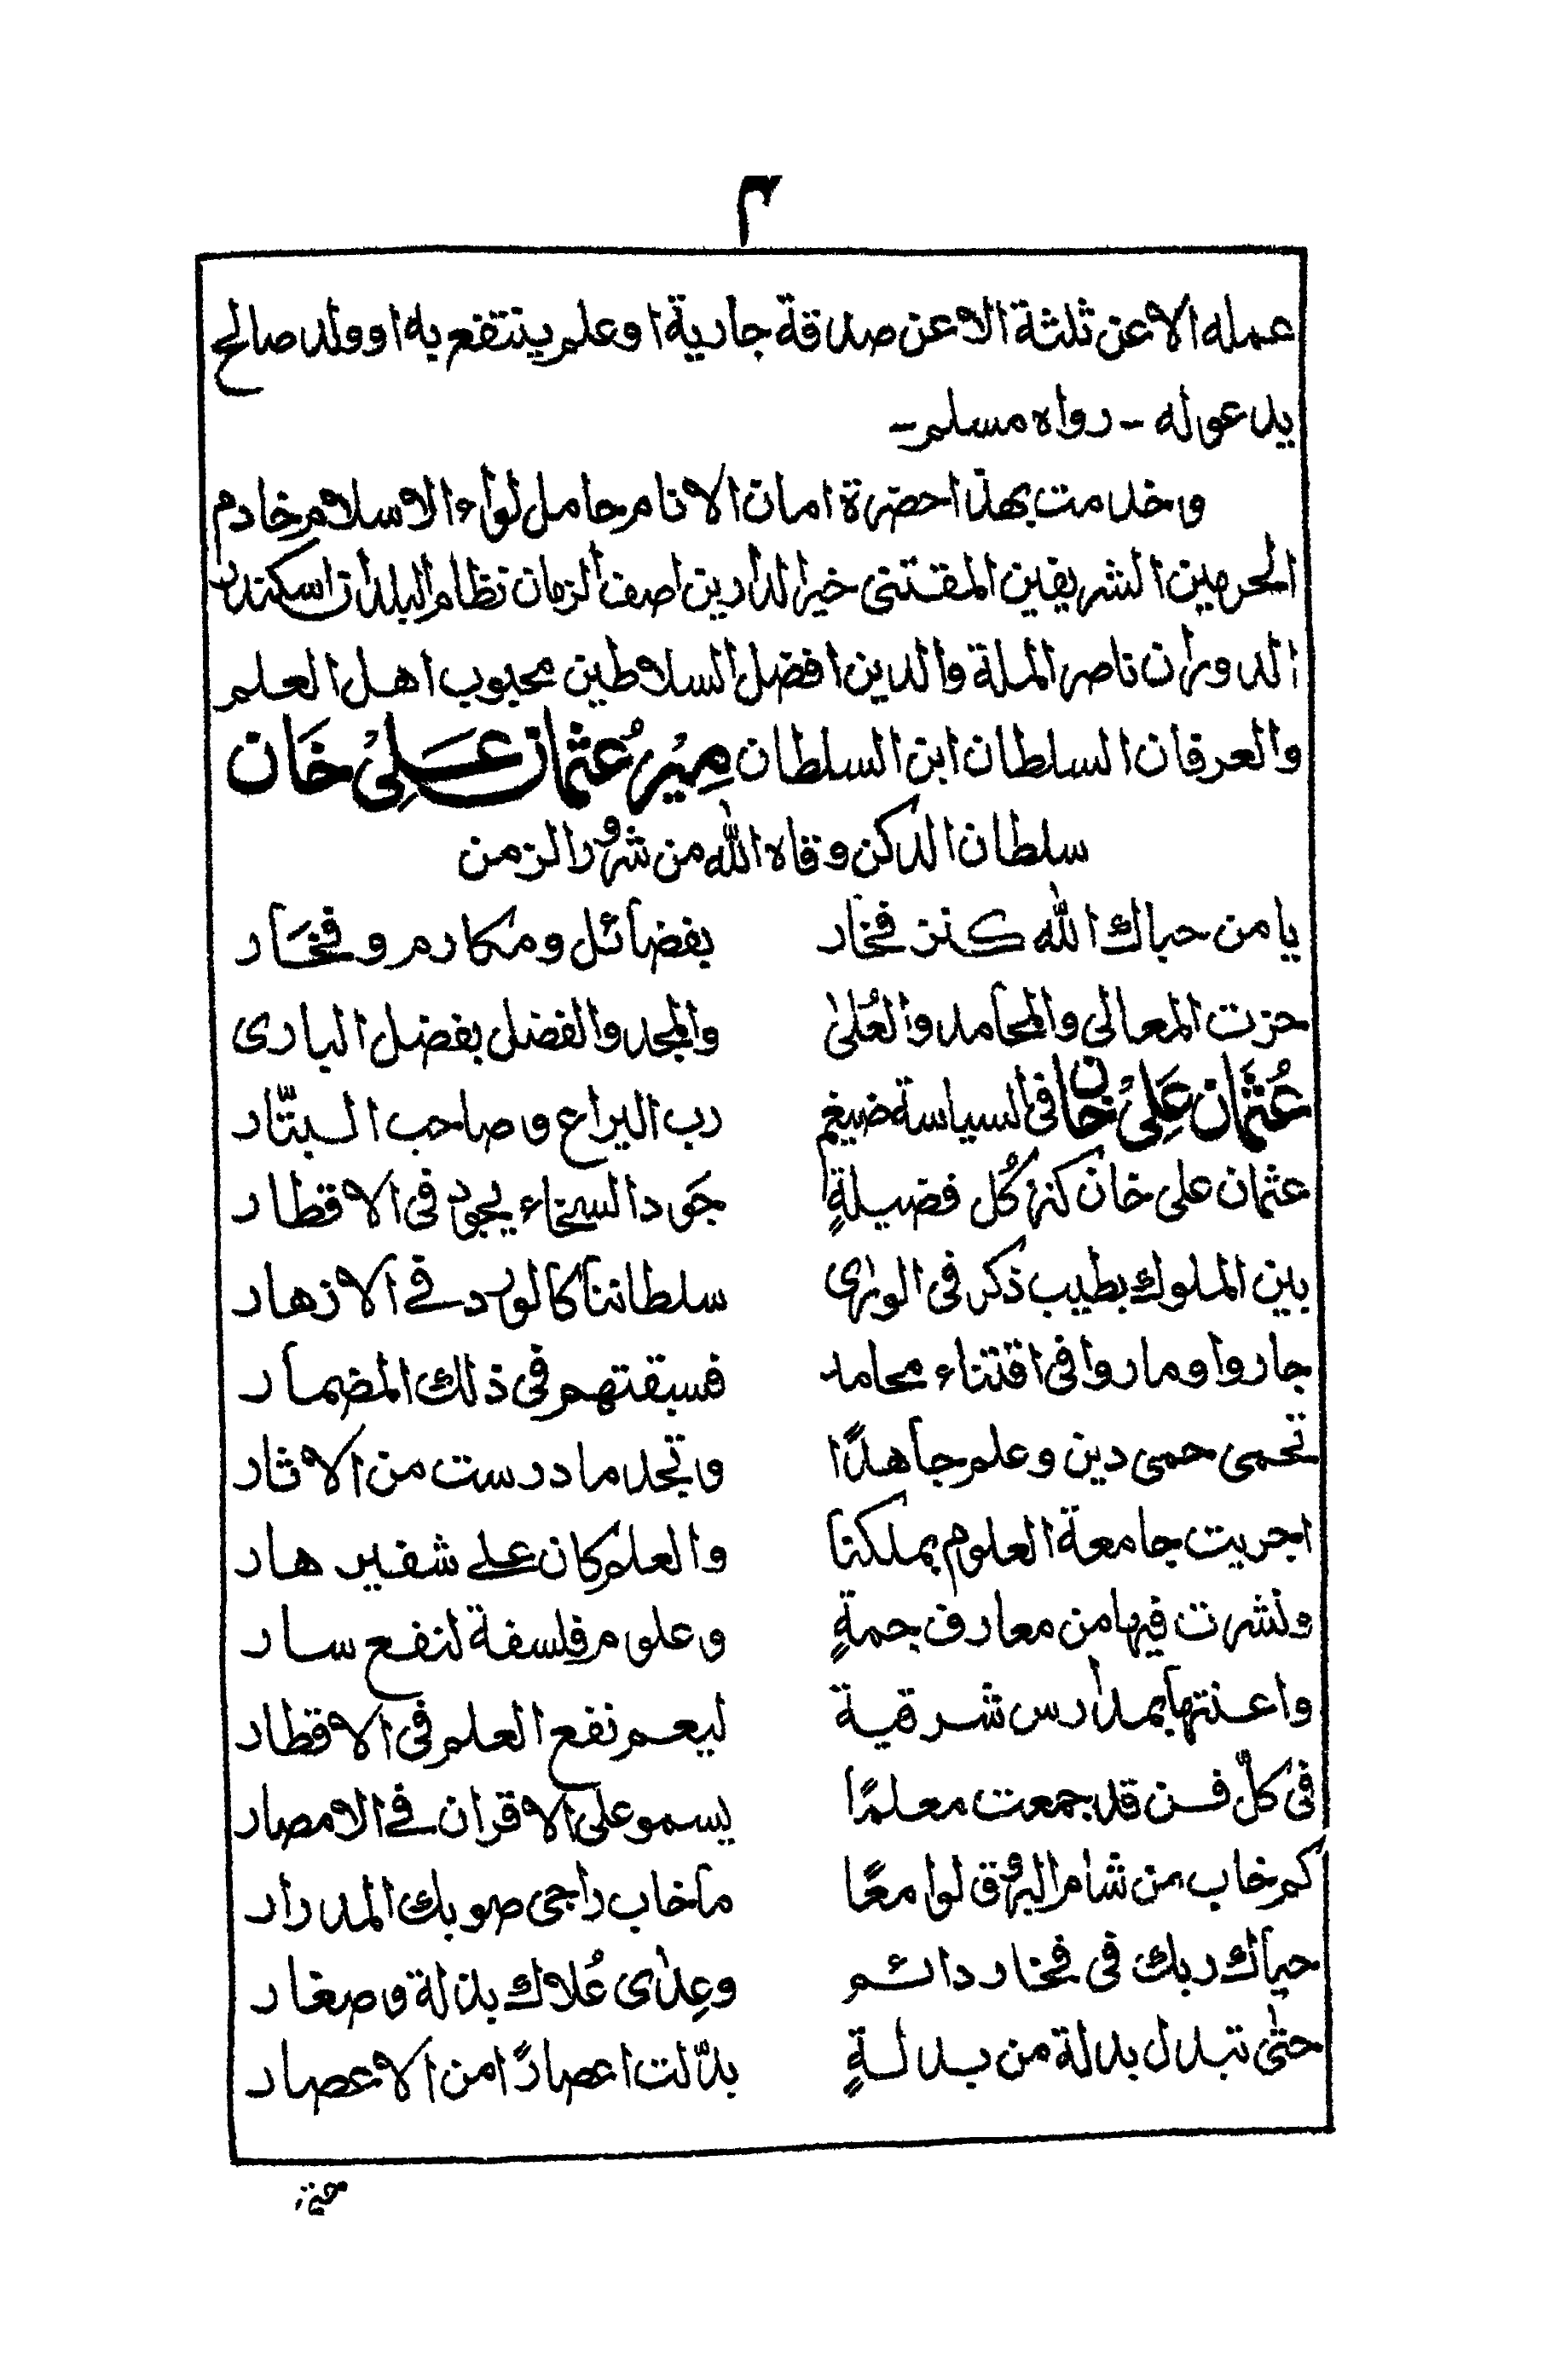 ٣
عمله الا عن ثلثة الا عن صدقة جارية او علم ينتفع به او ولد صالح
يدعو له - رواه مسلم -
وخدمت بهذا حضرة امان الانام حامل لواء الاسلام خادم
الحرمين الشريفين المقتنى خير الدارين اصف الزمان نظام البلدان اسكندر
الدوران ناصر الملة والدين افضل السلاطين محبوب اهل العلم
والعرفان السلطان ابن السلطان مِيْر عُثمان عَلِيْ خَان
سلطان الدكن وقاه الله من شرور الزمن
يا من حباك الله كنز فخار بفضائل ومكارم وفخَار
حزت المعالى والمحامد والعُلىٰ والمجد والفضل بفضل البارى
عُثمَان عَلِيْ خان فى السياسة ضيغم رب اليراع وصاحب البتّار
عثمان على خان كنز كُل فضيلةٍ جَود السخاء يجود فى الاقطار
بين الملوك بطيب ذكر فى الورٰى سلطاننا كالورد فے الازهار
جاروا وماروا فى اقتناء محامد فسبقتهم فى ذلك المضمار
تحمى حمى دين وعلم جاهدًا وتجد ما درست من الاثار
اجريت جامعة العلوم بملكنا والعلم كان علے شفير هار
ونشرت فيها من معارف جمةٍ وعلوم فلسفة لنفع سار
واعنتها بمدارس شرقية ليعم نفع العلم فى الاقطار
فى كلّ فن قد جمعت معلمًا يسمو على الاقران فے الامصار
كم خاب من شام البروق لوامعًا ما خاب راجى صوبك المدرار
حياك ربك فى فخار دائم وعِدٰى عُلاك بذلة وصغار
حتٰى تبدل بدلة من بدلةٍ بدّلت اعصارًا من الاعصار